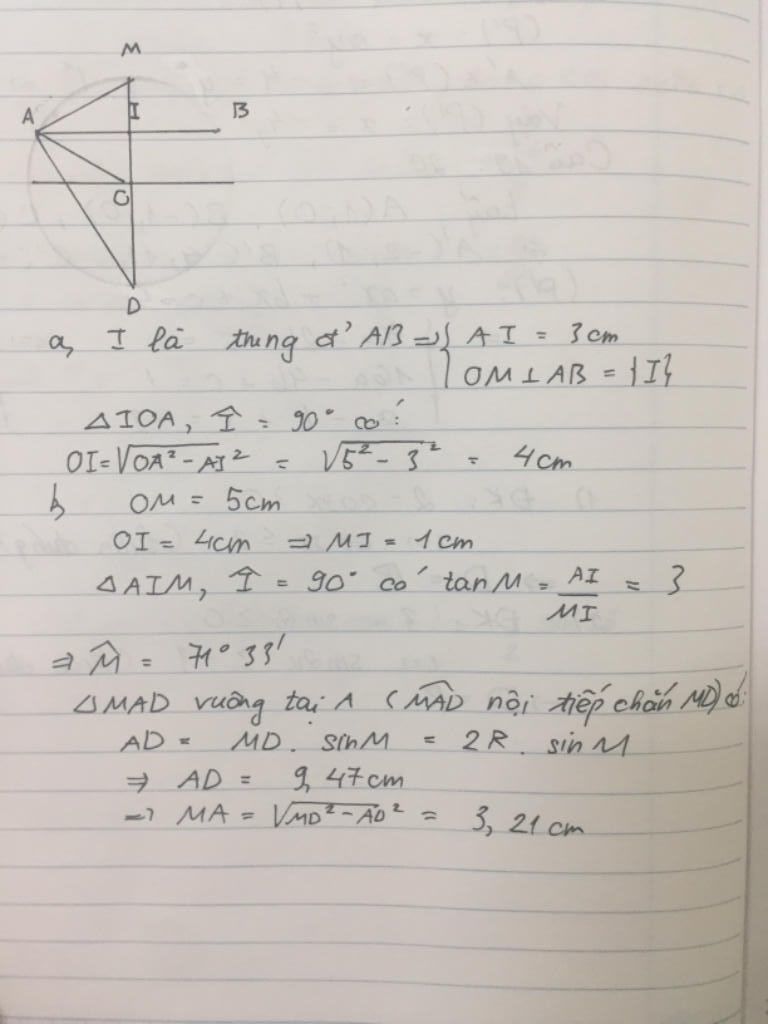 M
A
I
B
O
D
a, I là trung đ' AB => { AI = 3cm
OM ⊥ AB = {I}
△IOA, Î = 90° có:
OI = √OA² - AI² = √5² - 3² = 4cm
b, OM = 5cm
OI = 4cm => MI = 1cm
△AIM, Î = 90° có tan M = AI/MI = 3
=> M̂ = 71° 33'
△MAD vuông tại A (MAD nội tiếp chắn MD) có:
AD = MD. sinM = 2R. sinM
=> AD = 9,47cm
=> MA = √MD² - AD² = 3,21cm